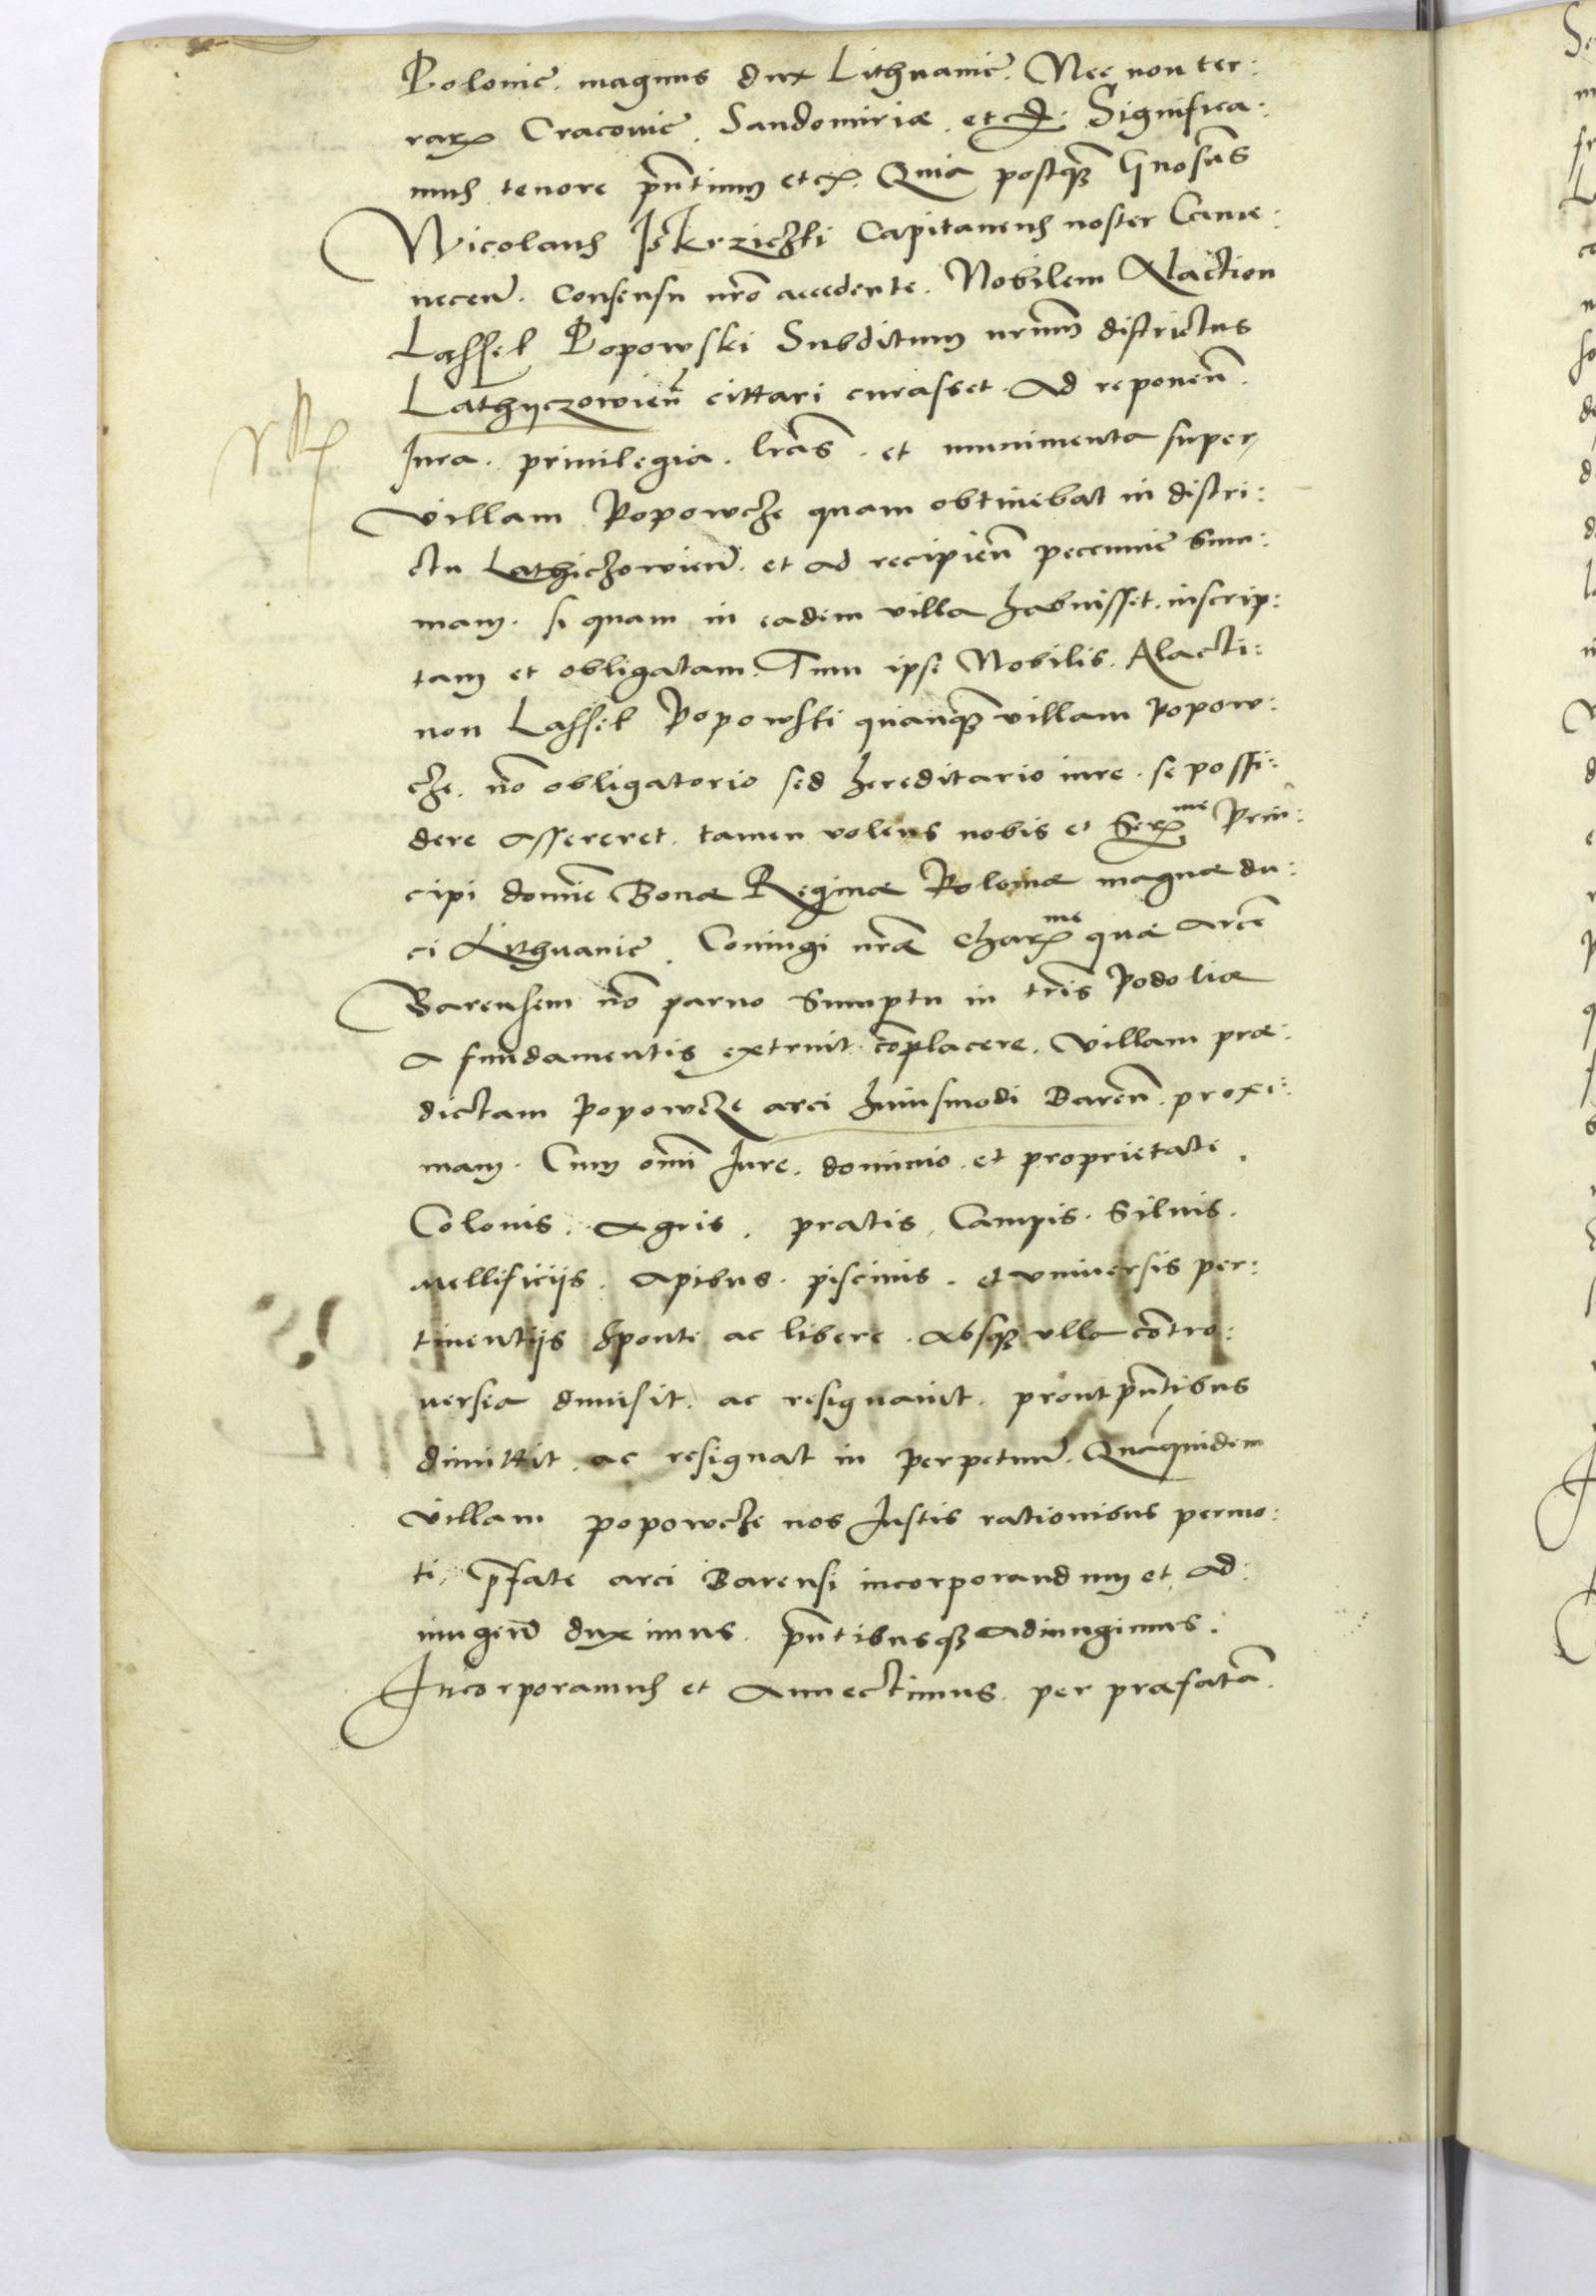 Polonie. magnus dux Lithuanie. Nec non ter:
rarꝝ Cracovie. Sandomiriæ. etcꝫ. Significa:
mus tenore pn̄tium etcꝫ. Quia postqꝫ Gnosus
Nicolaus Iskrziczki Capitaneus noster Came:
necen̄. Consensu nr̄o accedente. Nobilem Alaction
Lassel Popowski Subditum nrūm districtus
Lathyczowien̄ cittari curasset. Ad reponen̄.
Iura. privilegia. lrās. et munimenta super
villam Popowcze quam obtinebat in distri:
ctu Lathiczowien̄. et ad recipien̄ peccunie sum:
mam. si quam in eadem villa habuisset. inscrip:
tam et obligatam. Tum ipse Nobilis. Alacti:
non Lassel Popowski quanqꝫ villam Popow:
cze. nō obligatorio sed hereditario iure. se possi:
dere assereret. tamen volens nobis et Serꝫme Prin:
cipi domīe Bonæ Reginæ Poloniæ magnæ du:
ci Lithuanie. Coniugi nrǣ Charꝫme quæ arcē
Barensem nō parvo sumptu in tris̄ Podoliæ
a fundamentis extruit cōplacere. villam præ:
dictam Popowcze arci huiusmodi Baren̄. proxi:
mam. Cum omī Iure. dominio. et proprietate.
Colonis. Agris. pratis. Campis. Silvis.
mellificijs. Apibus. piscinis. et universis per:
tinentijs sponte ac libere. absqꝫ ulla contro:
versia dimisit. ac resignavit. prout pn̄tibus
dimittit. ac resignat in perpetuū. Quāquidem
villam popowcze nos Iustis rationibus permo:
ti. p̄fate arci Barensi incorporandum et ad:
iungen̄ duximus. pn̄tibusqꝫ adiungimus.
Incorporamus et Annectimus. per præfatā.